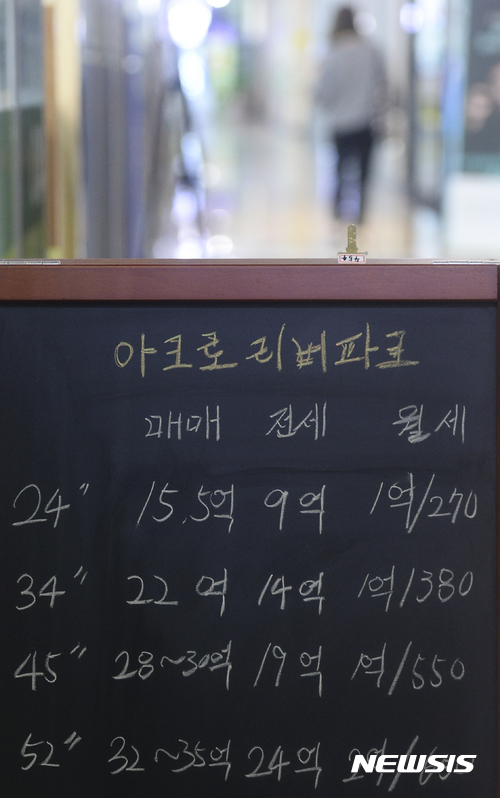 아크로 리버파크
매매 전세 월세
24" 15.5억 9억 1억/270
34" 22억 14억 1억/380
45" 28~30억 19억 1억/550
52" 32~35억 24억
NEWSIS